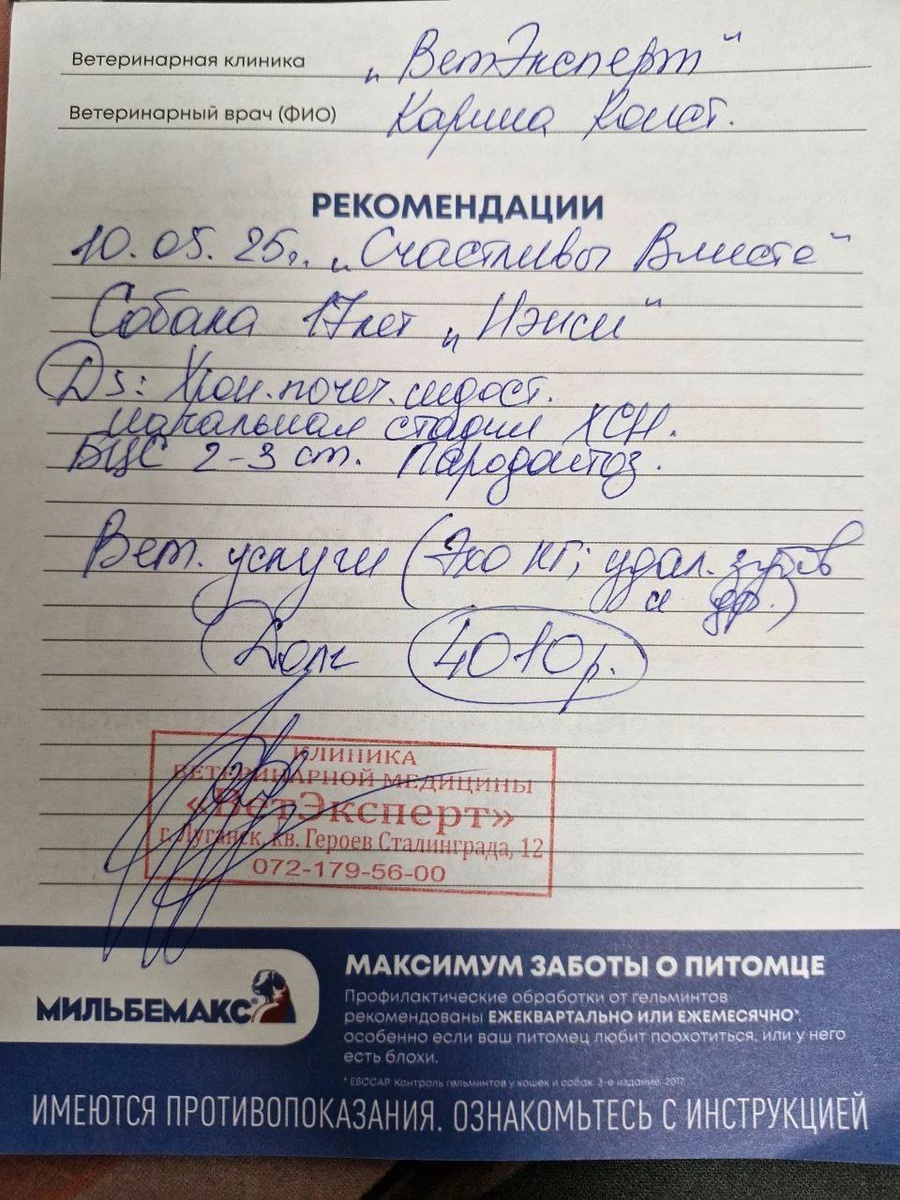 Ветеринарная клиника „ВетЭксперт"
Ветеринарный врач (ФИО) Карина Конст.
РЕКОМЕНДАЦИИ
10.05.25г. „Счастливы Вместе"
Собака 17 лет „Нэнси"
Ds: Хрон. почеч. недост.
начальная стадия ХСН.
БЦС 2-3 ст. Пародонтоз.
Вет. услуги (Эхо КГ; удал. зубов
и др.)
Долг 4010 р.
КЛИНИКА
ВЕТЕРИНАРНОЙ МЕДИЦИНЫ
«ВетЭксперт»
г. Луганск, кв. Героев Сталинграда, 12
072-179-56-00
МИЛЬБЕМАКС®
МАКСИМУМ ЗАБОТЫ О ПИТОМЦЕ
Профилактические обработки от гельминтов
рекомендованы ЕЖЕКВАРТАЛЬНО ИЛИ ЕЖЕМЕСЯЧНО*,
особенно если ваш питомец любит поохотиться, или у него
есть блохи.
* ESCCAP. Контроль гельминтов у кошек и собак. 3-е издание. 2017
ИМЕЮТСЯ ПРОТИВОПОКАЗАНИЯ. ОЗНАКОМЬТЕСЬ С ИНСТРУКЦИЕЙ